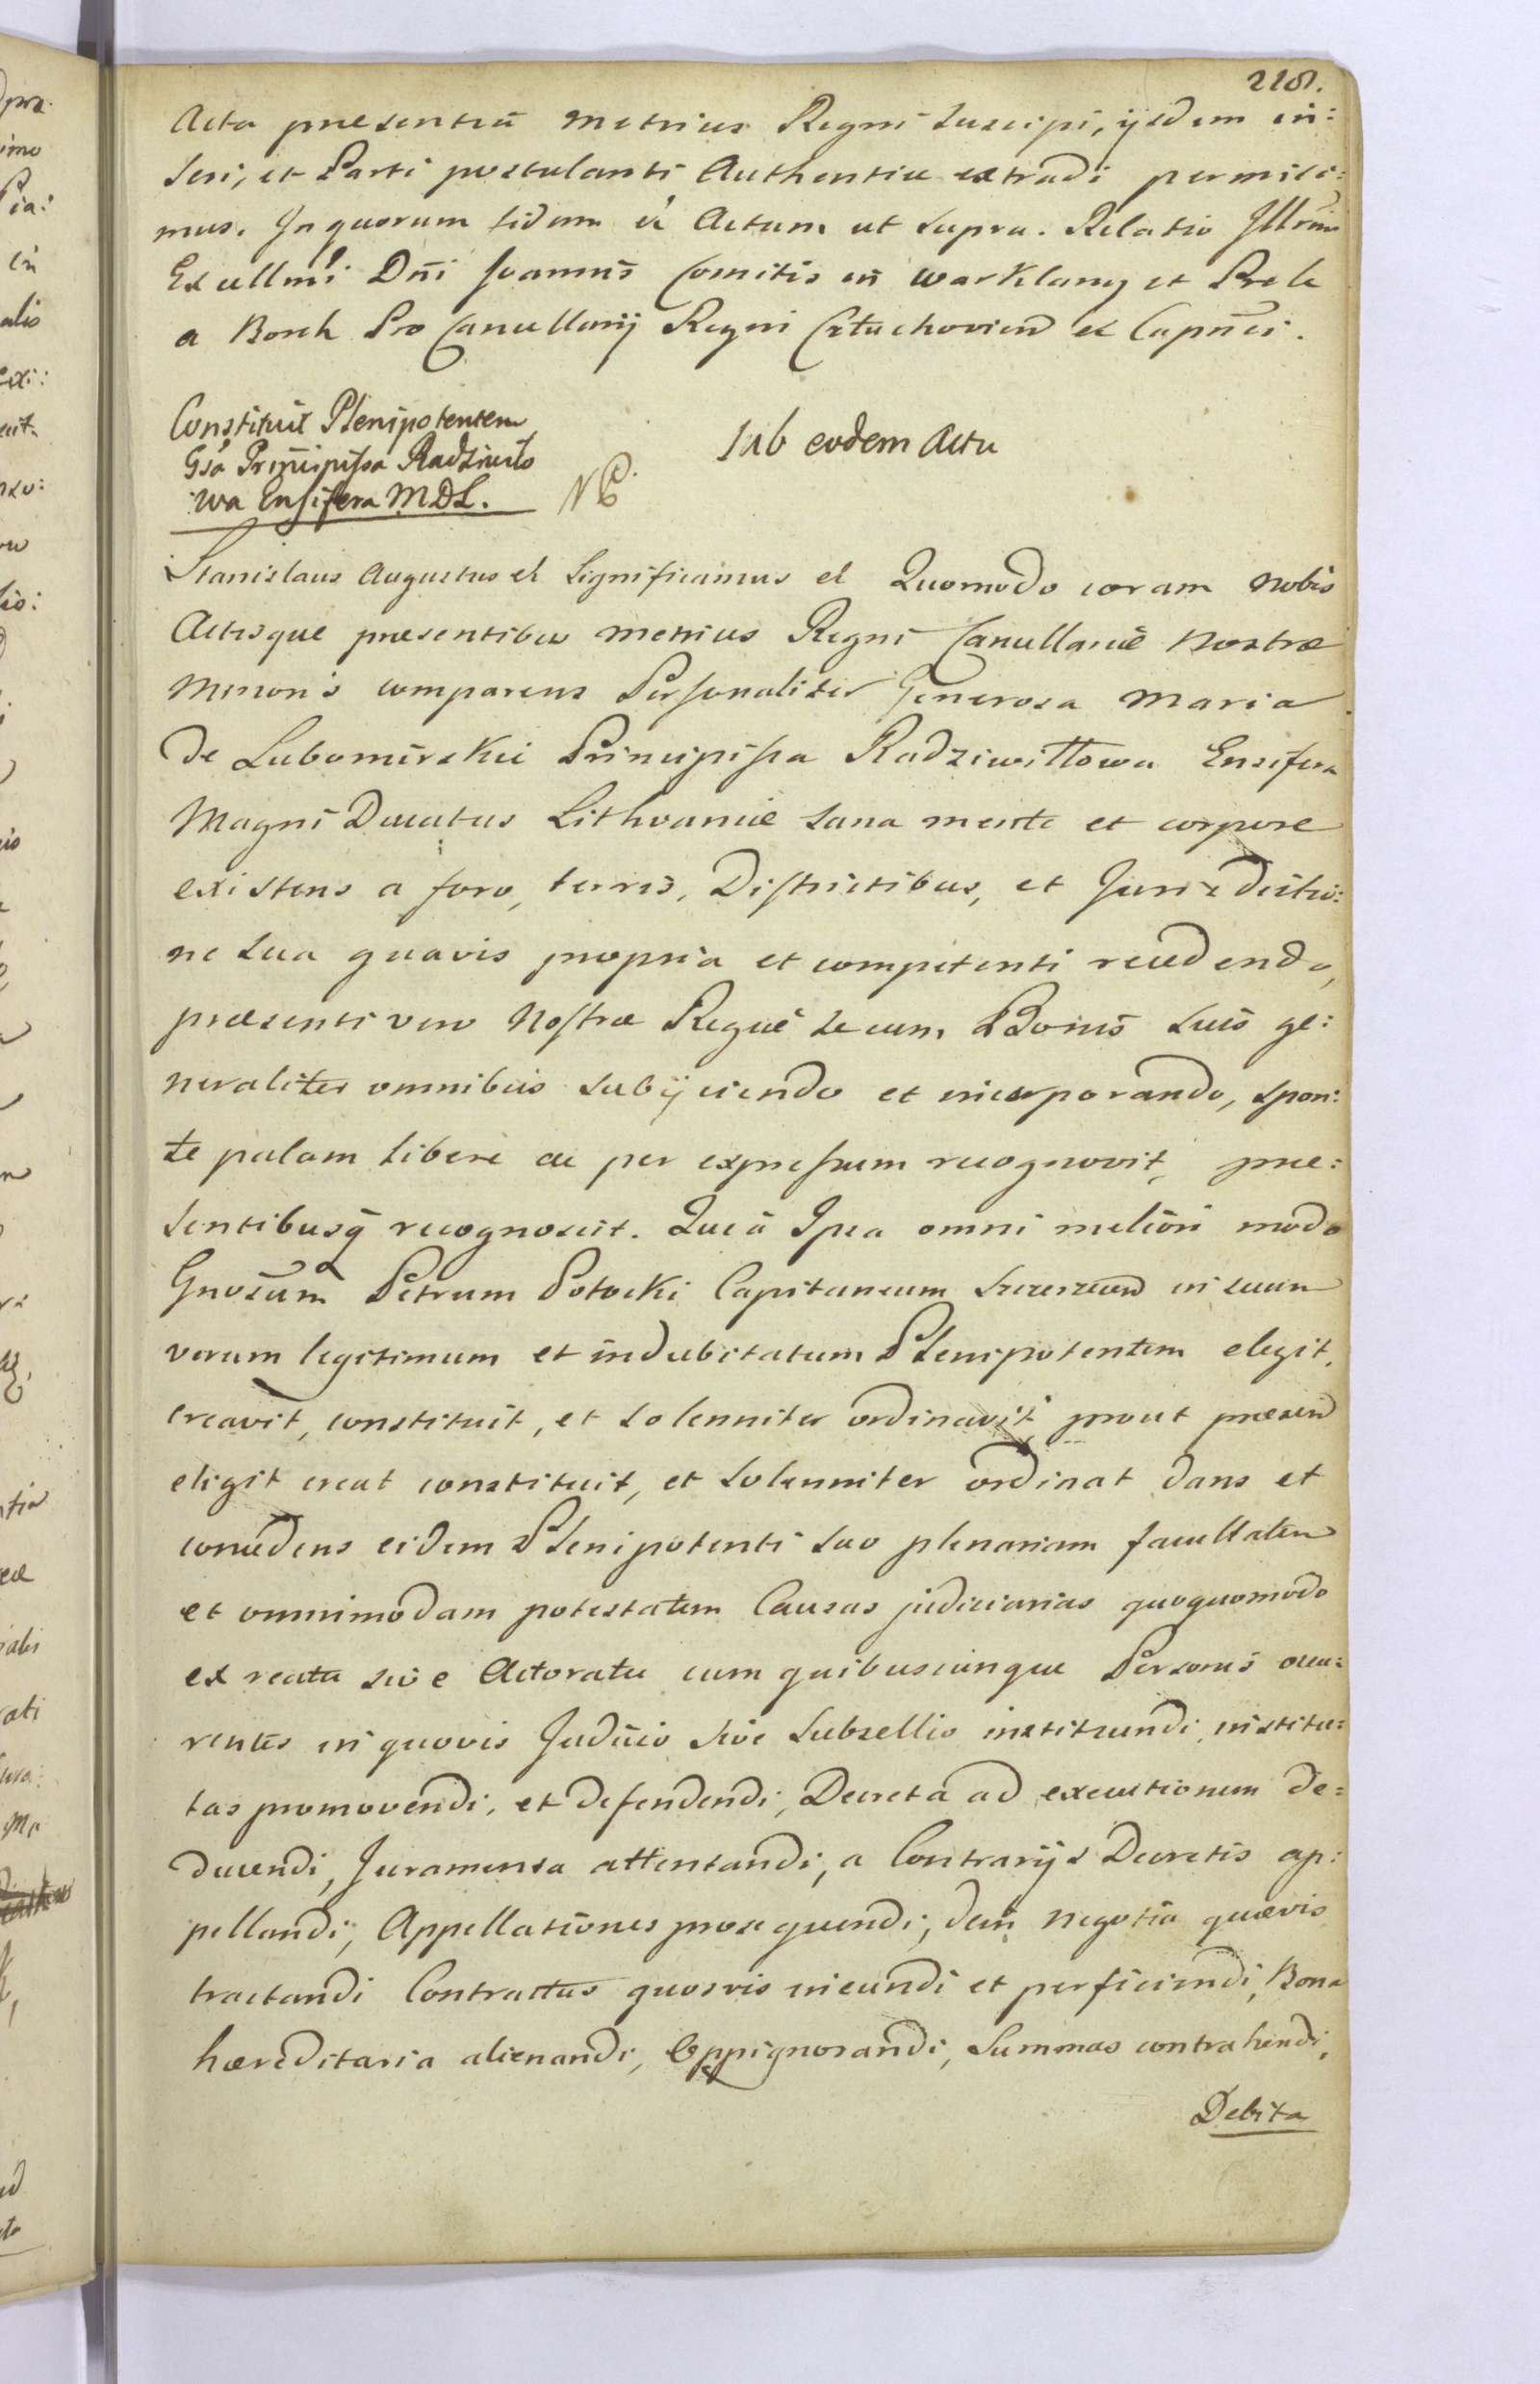 Acta praesentiū metrices Regni suscipi, ijsdem in:
seri, et Parti postulanti Authentice extradi permisi:
mus. In quorum fidem &c Actum ut supra. Relatio Illrmi
Excellmi Dñi Joannis Comitis in Warklany et Prele
a Borch Pro Cancellarij Regni Człuchovien et Capñei.
Constituit Plenipotentem
Gsa Principissa Radziwiło
wa Ensifera MDL.
Sub eodem Actu
Stanislaus Augustus et Significamus et Quomodo coram nobis
Actisque praesentibus metrices Regni Cancellariae Nostrae
Minoris comparens Personaliter Generosa Maria
de Lubomirskie Principissa Radziwiłłowa Ensifera
Magni Ducatus Lithvaniae sana mente et corpore
existens a foro, terris, Districtibus, et Jurisdictio:
ne sua quavis propria et competenti recedendo,
praesenti vero Nostrae Regiae se cum Bonis suis ge:
neraliter omnibus subijciendo et incorporando, spon:
te palam libere ac per expressum recognovit, prae:
sentibusq̃ recognoscit. Quia Ipsa omni meliori modo
Gnosum Petrum Potocki Capitaneum Szczerzecen in suum
verum legitimum et indubitatum Plenipotentem elegit,
creavit, constituit, et solenniter ordinavit, prout praesen
eligit creat constituit, et solenniter ordinat dans et
concedens eidem Plenipotenti suo plenariam facultatem
et omnimodam potestatem Causas judiciarias quoquomodo
ex reatu sive Actoratu cum quibuscunque Personis occu:
rentes in quovis Judicio sive Subsellio instituendi, institu:
tas promovendi, et defendendi, Decreta ad executionem de:
ducendi, Juramenta attentandi, a Contrarijs Decretis ap:
pellandi, Appellationes prosequendi, dein negotia quaevis
tractandi Contractus quosvis ineundi et perficiendi, Bona
haereditaria alienandi, Oppignorandi, Summas contrahendi,
Debita